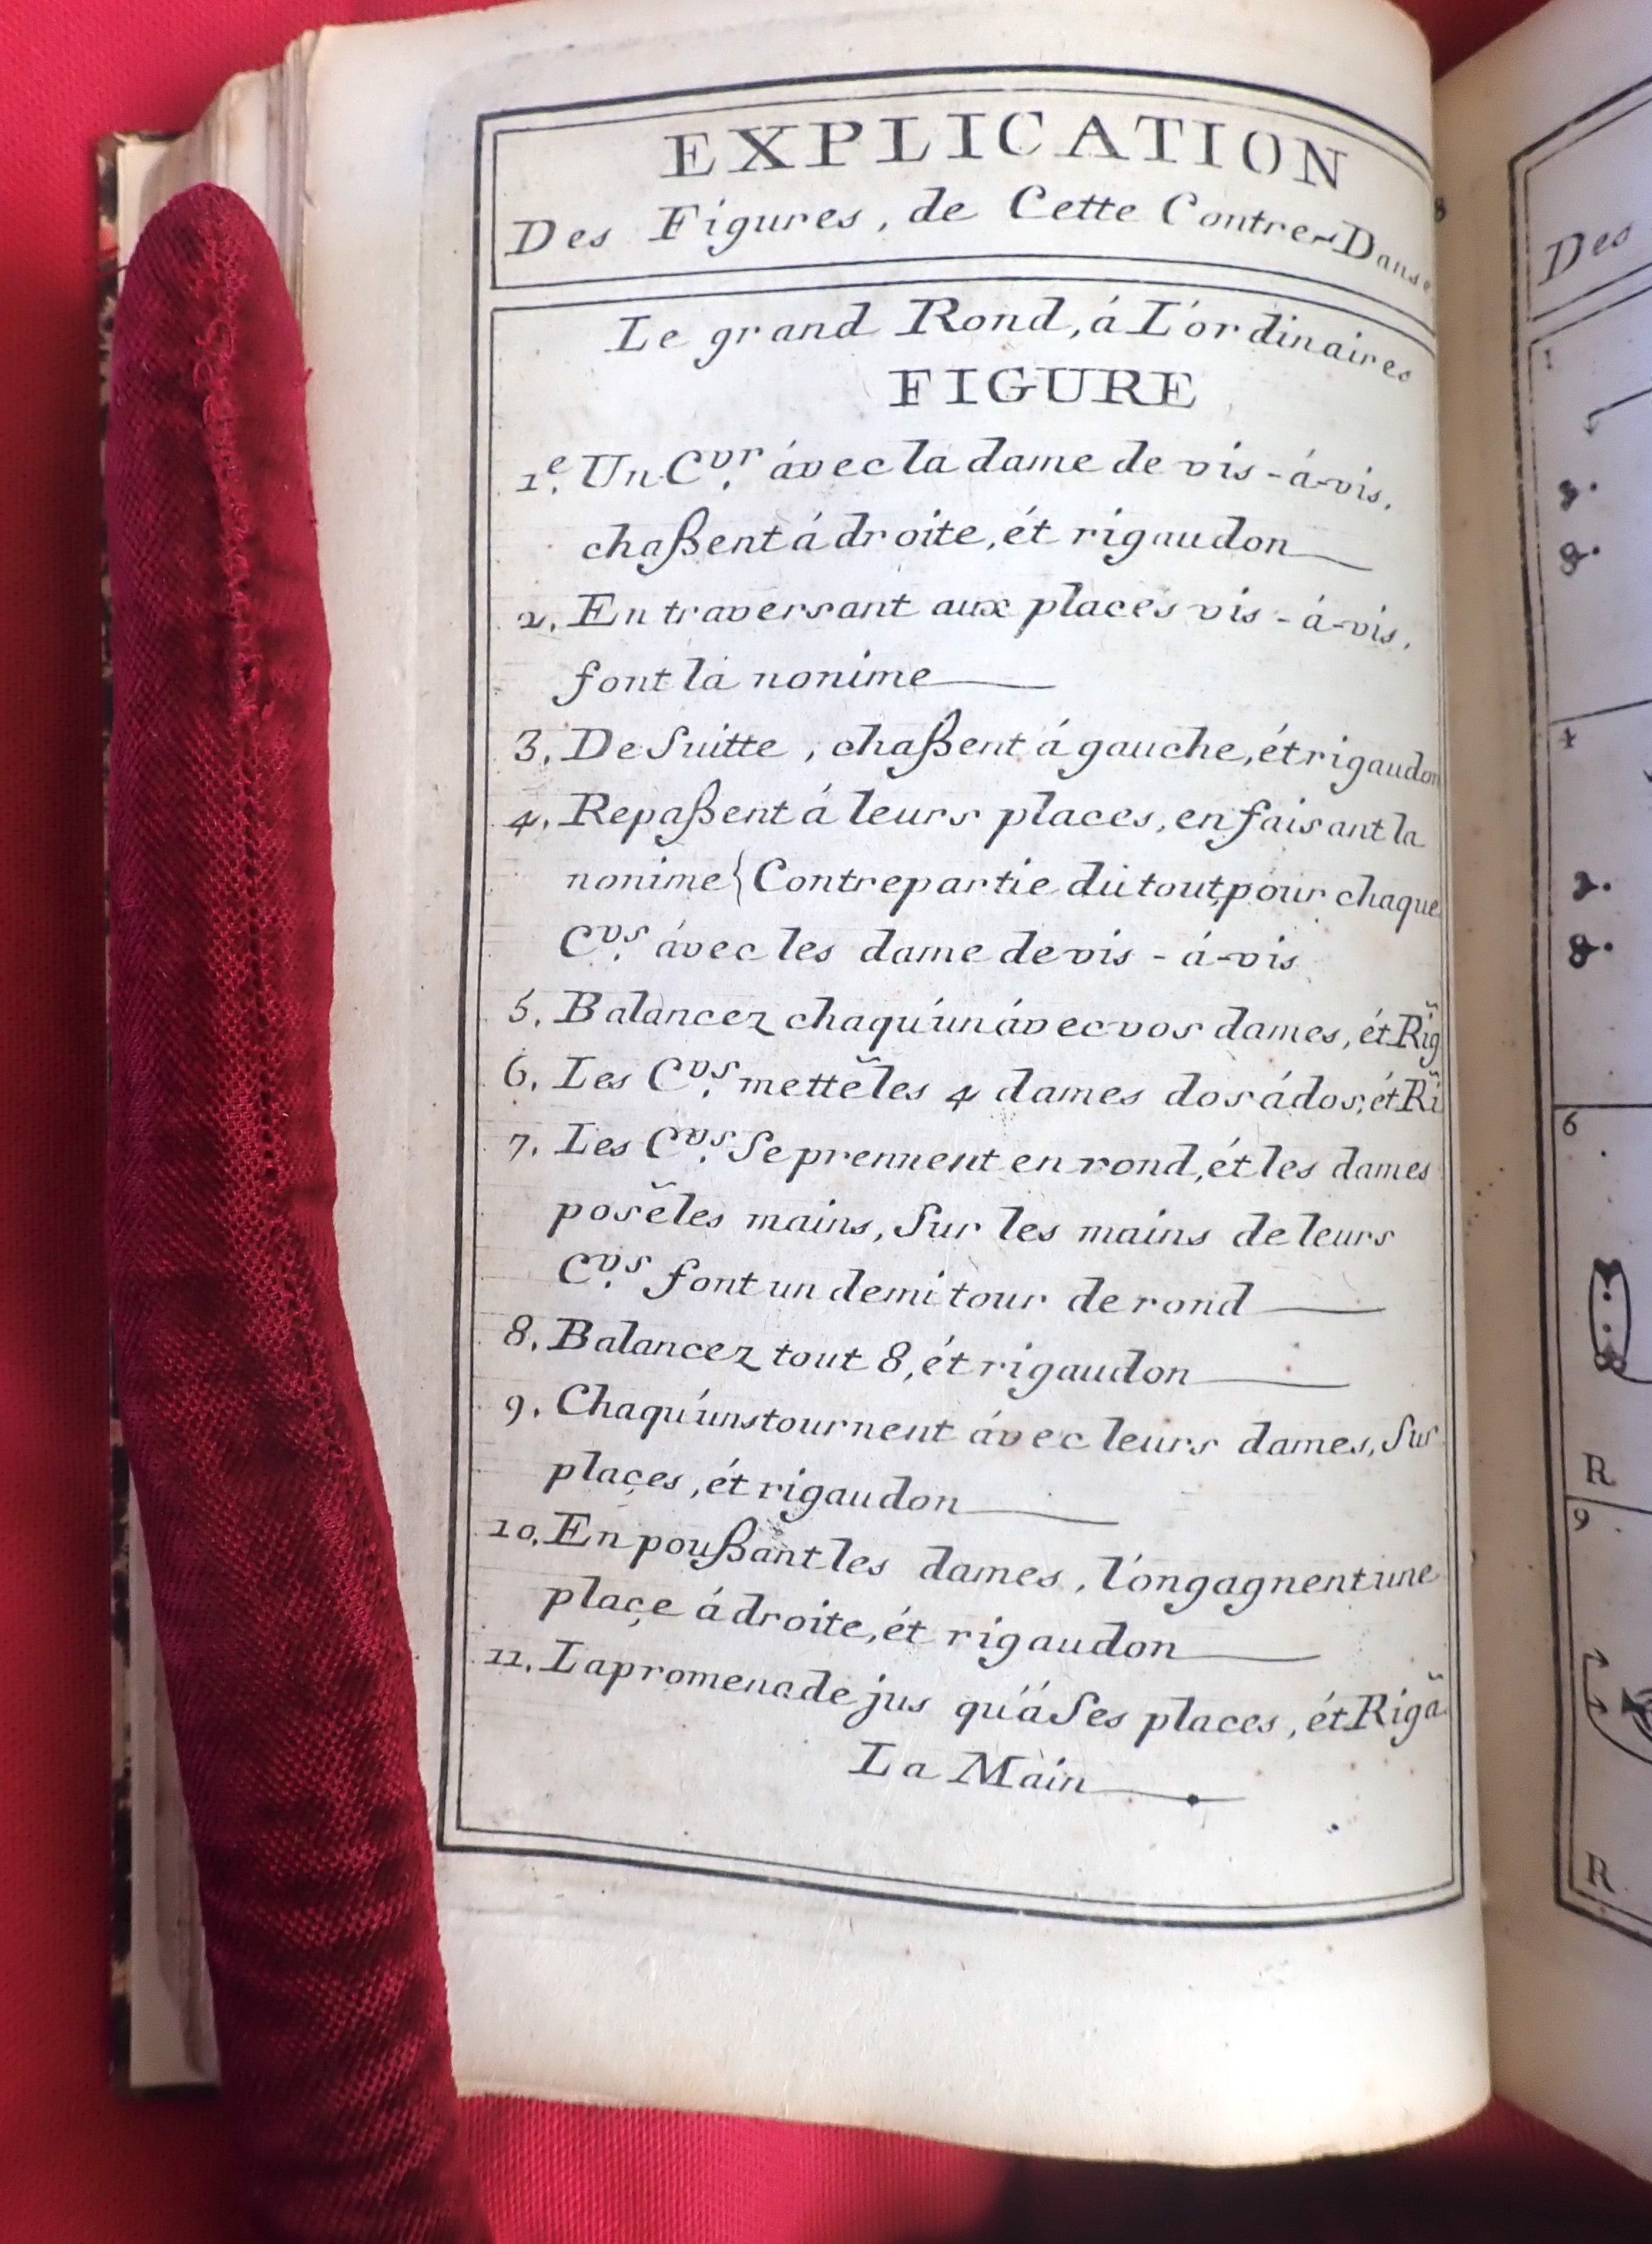 EXPLICATION
Des Figures, de Cette Contre-Danse
Le grand Rond, á L'ordinaires
FIGURE
1.e Un C.vr ávec la dame de vis-á-vis,
chaßent á droite, ét rigaudon
2, En traversant aux places vis-á-vis,
font la nonime
3, De Suitte, chaßent á gauche, ét rigaudon
4, Repaßent á leurs places, en faisant la
nonime { Contrepartie du tout, pour chaque
C.vs ávec les dame de vis-á-vis
5, Balancez chaqu'un ávec vos dames, ét Rig̃
6, Les C.vs mettẽ les 4 dames dos á dos, ét Rĩ
7, Les C.vs Se prennent en rond, ét les dames
posẽ les mains, Sur les mains de leurs
C.vs font un demi tour de rond
8, Balancez tout 8, ét rigaudon
9, Chaqu'uns tournent ávec leurs dames, Sur
plaçes, ét rigaudon
10, En poußant les dames, l'on gagnent une
plaçe á droite, ét rigaudon
11, La promenade jus qu'á Ses places, ét Rigã
La Main
Des
1
4
6
R
9
R